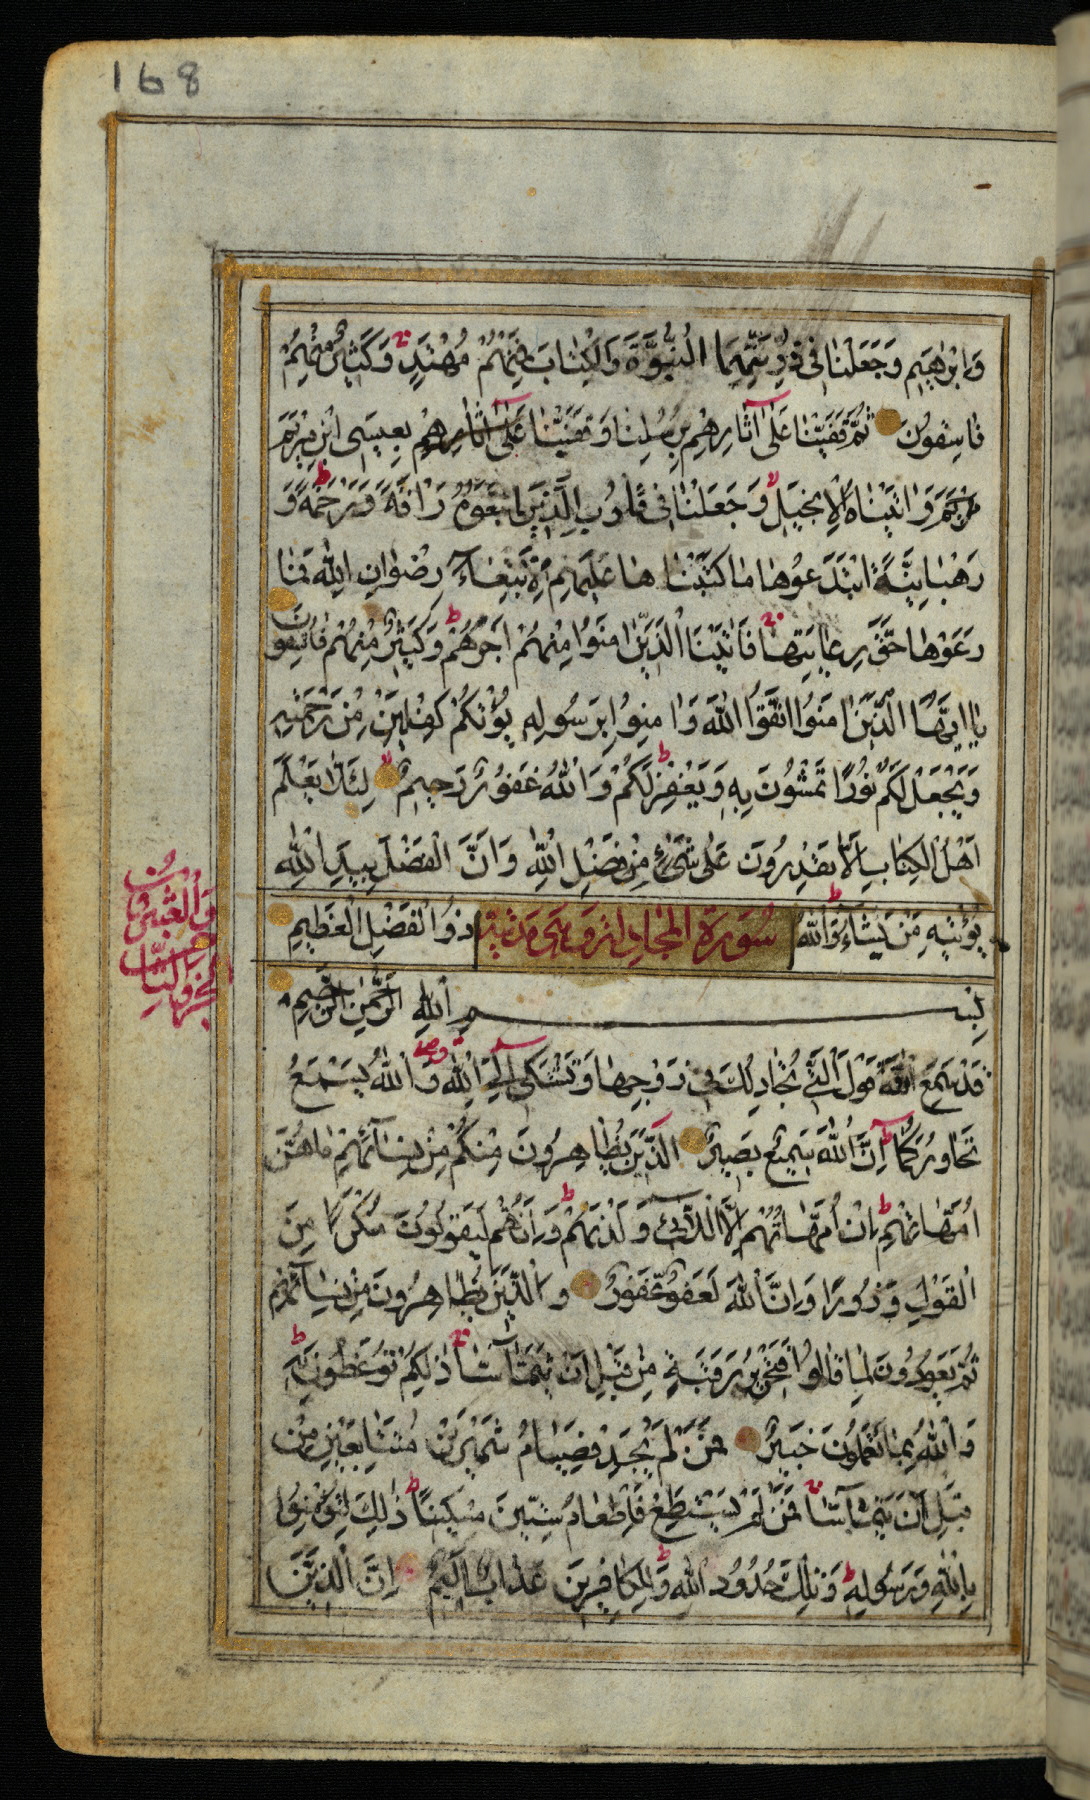 168
وَاِبْرٰهٖيمَ وَجَعَلْنَا فِى ذُرِّيَّتِهِمَا النُّبُوَّةَ وَالْكِتَابَ فَمِنْهُمْ مُهْتَدٍ وَكَثٖيرٌ مِنْهُمْ
فَاسِقُونَ ثُمَّ قَفَّيْنَا عَلٰٓى اٰثَارِهِمْ بِرُسُلِنَا وَقَفَّيْنَا عَلٰٓى اٰثَارِهِمْ بِعٖيسَى ابْنِ مَرْيَمَ
مَرْيَمَ وَاٰتَيْنَاهُ الْاِنْجٖيلَ وَجَعَلْنَا فٖى قُلُوبِ الَّذٖينَ اتَّبَعُوهُ رَاْفَةً وَرَحْمَةً وَ
رَهْبَانِيَّةً ابْتَدَعُوهَا مَا كَتَبْنَاهَا عَلَيْهِمْ اِلَّا ابْتِغَآءَ رِضْوَانِ اللّٰهِ فَمَا
رَعَوْهَا حَقَّ رِعَايَتِهَا فَاٰتَيْنَا الَّذٖينَ اٰمَنُوا مِنْهُمْ اَجْرَهُمْ وَكَثٖيرٌ مِنْهُمْ فَاسِقُونَ
يَا اَيُّهَا الَّذٖينَ اٰمَنُوا اتَّقُوا اللّٰهَ وَاٰمِنُوا بِرَسُولِهٖ يُؤْتِكُمْ كِفْلَيْنِ مِنْ رَحْمَتِهٖ
وَيَجْعَلْ لَكُمْ نُورًا تَمْشُونَ بِهٖ وَيَغْفِرْ لَكُمْ وَاللّٰهُ غَفُورٌ رَحٖيمٌ لِئَلَّا يَعْلَمَ
اَهْلُ الْكِتَابِ اَلَّا يَقْدِرُونَ عَلٰى شَىْءٍ مِنْ فَضْلِ اللّٰهِ وَاَنَّ الْفَضْلَ بِيَدِ اللّٰهِ
يُؤْتٖيهِ مَنْ يَشَآءُ وَاللّٰهُ ذُو الْفَضْلِ الْعَظٖيمِ
سُورَةُ الْمُجَادِلَة وَهِىَ مَدَنِيَّة
بِسْمِ اللّٰهِ الرَّحْمٰنِ الرَّحٖيمِ
قَدْ سَمِعَ اللّٰهُ قَوْلَ الَّتٖى تُجَادِلُكَ فٖى زَوْجِهَا وَتَشْتَكٖٓى اِلَى اللّٰهِ وَاللّٰهُ يَسْمَعُ
تَحَاوُرَكُمَا اِنَّ اللّٰهَ سَمٖيعٌ بَصٖيرٌ الَّذٖينَ يُظَاهِرُونَ مِنْكُمْ مِنْ نِسَآئِهِمْ مَا هُنَّ
اُمَّهَاتِهِمْ اِنْ اُمَّهَاتُهُمْ اِلَّا اللَّآئٖى وَلَدْنَهُمْ وَاِنَّهُمْ لَيَقُولُونَ مُنْكَرًا مِنَ
الْقَوْلِ وَزُورًا وَاِنَّ اللّٰهَ لَعَفُوٌّ غَفُورٌ وَالَّذٖينَ يُظَاهِرُونَ مِنْ نِسَآئِهِمْ
ثُمَّ يَعُودُونَ لِمَا قَالُوا فَتَحْرٖيرُ رَقَبَةٍ مِنْ قَبْلِ اَنْ يَتَمَآسَّا ذٰلِكُمْ تُوعَظُونَ بِهٖ
وَاللّٰهُ بِمَا تَعْمَلُونَ خَبٖيرٌ فَمَنْ لَمْ يَجِدْ فَصِيَامُ شَهْرَيْنِ مُتَتَابِعَيْنِ مِنْ
قَبْلِ اَنْ يَتَمَآسَّا فَمَنْ لَمْ يَسْتَطِعْ فَاِطْعَامُ سِتّٖينَ مِسْكٖينًا ذٰلِكَ لِتُؤْمِنُوا
بِاللّٰهِ وَرَسُولِهٖ وَتِلْكَ حُدُودُ اللّٰهِ وَلِلْكَافِرٖينَ عَذَابٌ اَلٖيمٌ اِنَّ الَّذٖينَ